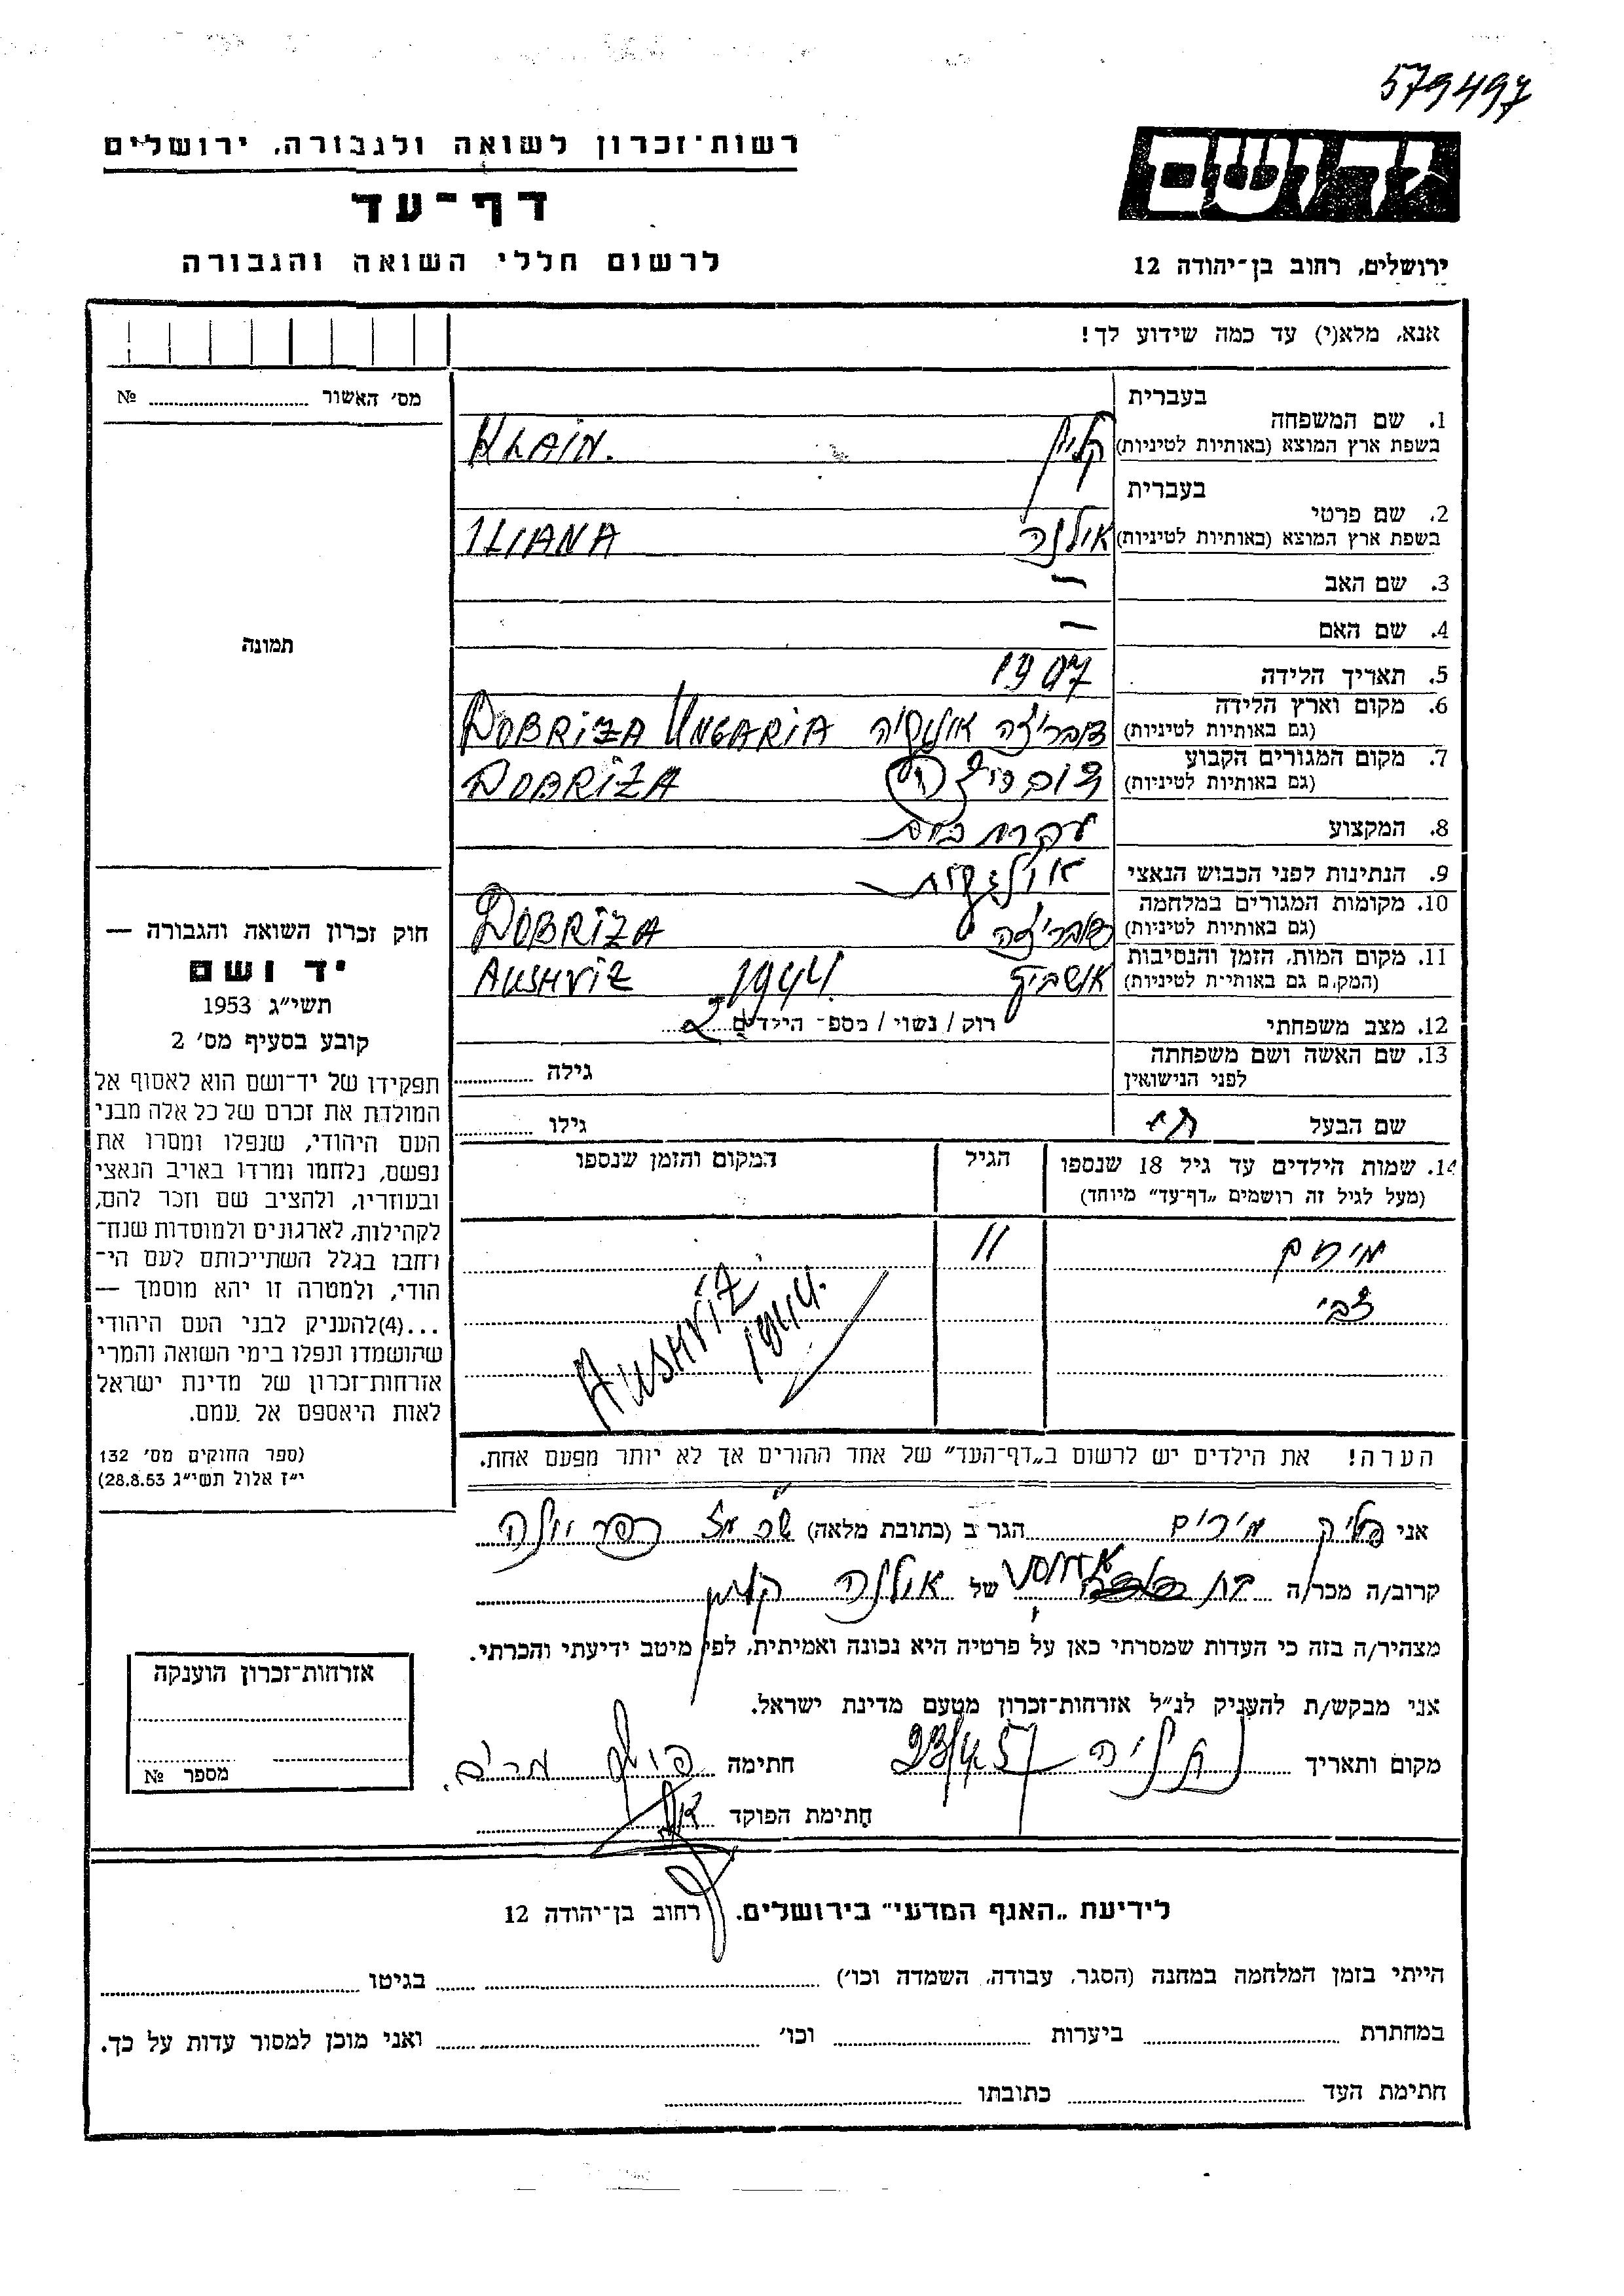 579497
רשות־זכרון לשואה ולגבורה, ירושלים
דף־עד
לרשום חללי השואה והגבורה
יד ושם
ירושלים, רחוב בן־יהודה 12
אנא, מלא(י) עד כמה שידוע לך!
מס׳ האשור № 
1. שם המשפחה
בעברית
קליין
בשפת ארץ המוצא (באותיות לטיניות)
KLAIN.
2. שם פרטי
בעברית
אילנה
בשפת ארץ המוצא (באותיות לטיניות)
ILIANA
3. שם האב —
4. שם האם —
5. תאריך הלידה 1907
6. מקום וארץ הלידה
(גם באותיות לטיניות)
דובריצה DOBRIZA UNGARIA
7. מקום המגורים הקבוע
(גם באותיות לטיניות)
DOBRIZA
8. המקצוע עקרת בית
9. הנתינות לפני הכבוש הנאצי
10. מקומות המגורים במלחמה
(גם באותיות לטיניות)
דובריצה DOBRIZA
11. מקום המות, הזמן והנסיבות
(המקום גם באותיות לטיניות)
אושביץ 1944 AUSHVIZ
12. מצב משפחתי רוק / נשוי / מספ־ הילדים 2
13. שם האשה ושם משפחתה
לפני הנישואין
גילה
שם הבעל
גילו
14. שמות הילדים עד גיל 18 שנספו
(מעל לגיל זה רושמים „דף־עד” מיוחד)
הגיל
המקום והזמן שנספו
מרים 11
צבי
AUSHVIZ
1944.
הערה! את הילדים יש לרשום ב„דף־העד” של אחד ההורים אך לא יותר מפעם אחת.
תמונה
חוק זכרון השואה והגבורה —
יד ושם
תשי״ג 1953
קובע בסעיף מס׳ 2
תפקידו של יד־ושם הוא לאסוף אל
המולדת את זכרם של כל אלה מבני
העם היהודי, שנפלו ומסרו את
נפשם, נלחמו ומרדו באויב הנאצי
ובעוזריו, ולהציב שם וזכר להם,
לקהילות, לארגונים ולמוסדות שנח־
רחבו בגלל השתייכותם לעם הי־
הודי, ולמטרה זו יהא מוסמך —
...(4)להעניק לבני העם היהודי
שהושמדו ונפלו בימי השואה והמרי
אזרחות־זכרון של מדינת ישראל
לאות היאספם אל עמם.
(ספר החוקים מס׳ 132
י״ז אלול תשי״ג 28.8.53)
אני מירים הגר ב (כתובת מלאה)
קרוב/ה מכר/ה בת של אילנה קליין
מצהיר/ה בזה כי העדות שמסרתי כאן על פרטיה היא נכונה ואמיתית, לפי מיטב ידיעתי והכרתי.
אני מבקש/ת להעניק לנ״ל אזרחות־זכרון מטעם מדינת ישראל.
מקום ותאריך נתניה 23/4 57 חתימה
חתימת הפוקד
אזרחות־זכרון הוענקה
מספר №
לידיעת „האגף המדעי” בירושלים. רחוב בן־יהודה 12
הייתי בזמן המלחמה במחנה (הסגר, עבודה, השמדה וכו׳) בגיטו
במחתרת ביערות וכו׳ ואני מוכן למסור עדות על כך.
חתימת העד כתובתו